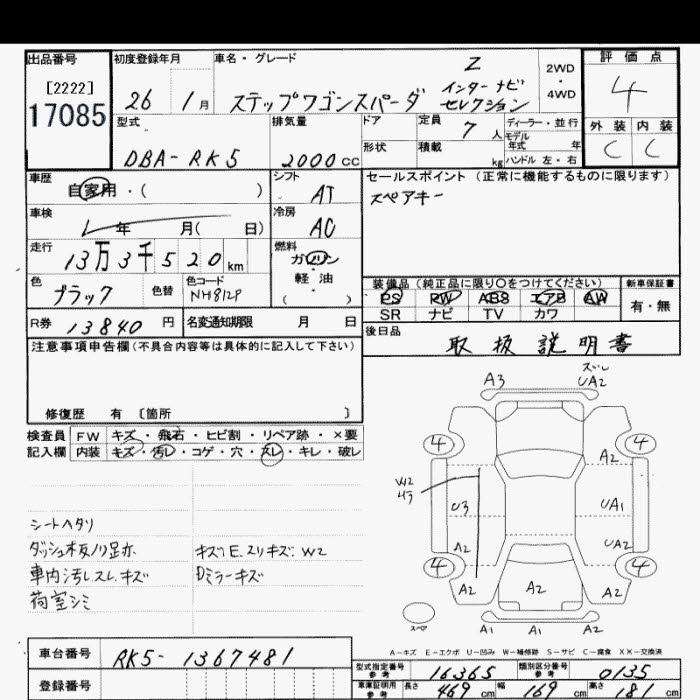 出品番号 初度登録年月 車名・グレード 評価点
[2222]
17085
26 1月 ステップワゴンスパーダ Z インターナビ セレクション 2WD・4WD 4
外装 内装
C C
型式 排気量 ドア 定員 7人 ディーラー・並行
モデル年式 年
DBA-RK5 2000cc 形状 積載 kg ハンドル 左・右
車歴 自家用・( ) シフト AT
セールスポイント(正常に機能するものに限ります)
スペアキー
車検 年 月( 日) 冷房 AC
走行 13万3千520km 燃料 ガソリン 軽・油 ( )
色 ブラック 色替 色コード NH812P
装備品(純正品に限り○をつけてください) 新車保証書
PS PW ABS エアB AW 有・無
SR ナビ TV カワ
R券 13840円 名変通知期限 月 日
後日品 取扱説明書
注意事項申告欄(不具合内容等は具体的に記入して下さい)
修復歴 有 [箇所 ]
検査員 FW キズ・飛石・ヒビ割・リペア跡・×要
記入欄 内装 キズ・汚レ・コゲ・穴・スレ・キレ・破レ
シートヘタリ
ダッシュ板ノリ足亦
キズE.スリキズ.W2
車内汚レスレ.キズ
Dミラーキズ
荷室シミ
A3 UA2
4 4
A2
W2
U3 UA1
A2 UA2
4 4
A2 A2 A2
スペア A1 A1 A1
A-キズ E-エクボ U-凹み W-補修跡 S-サビ C-腐食 XX-交換済
車台番号 RK5-1367481
型式指定番号 参考 16365 類別区分番号 参考 0135
登録番号
車庫証明用 参考 長さ 469cm 幅 169cm 高さ 181cm